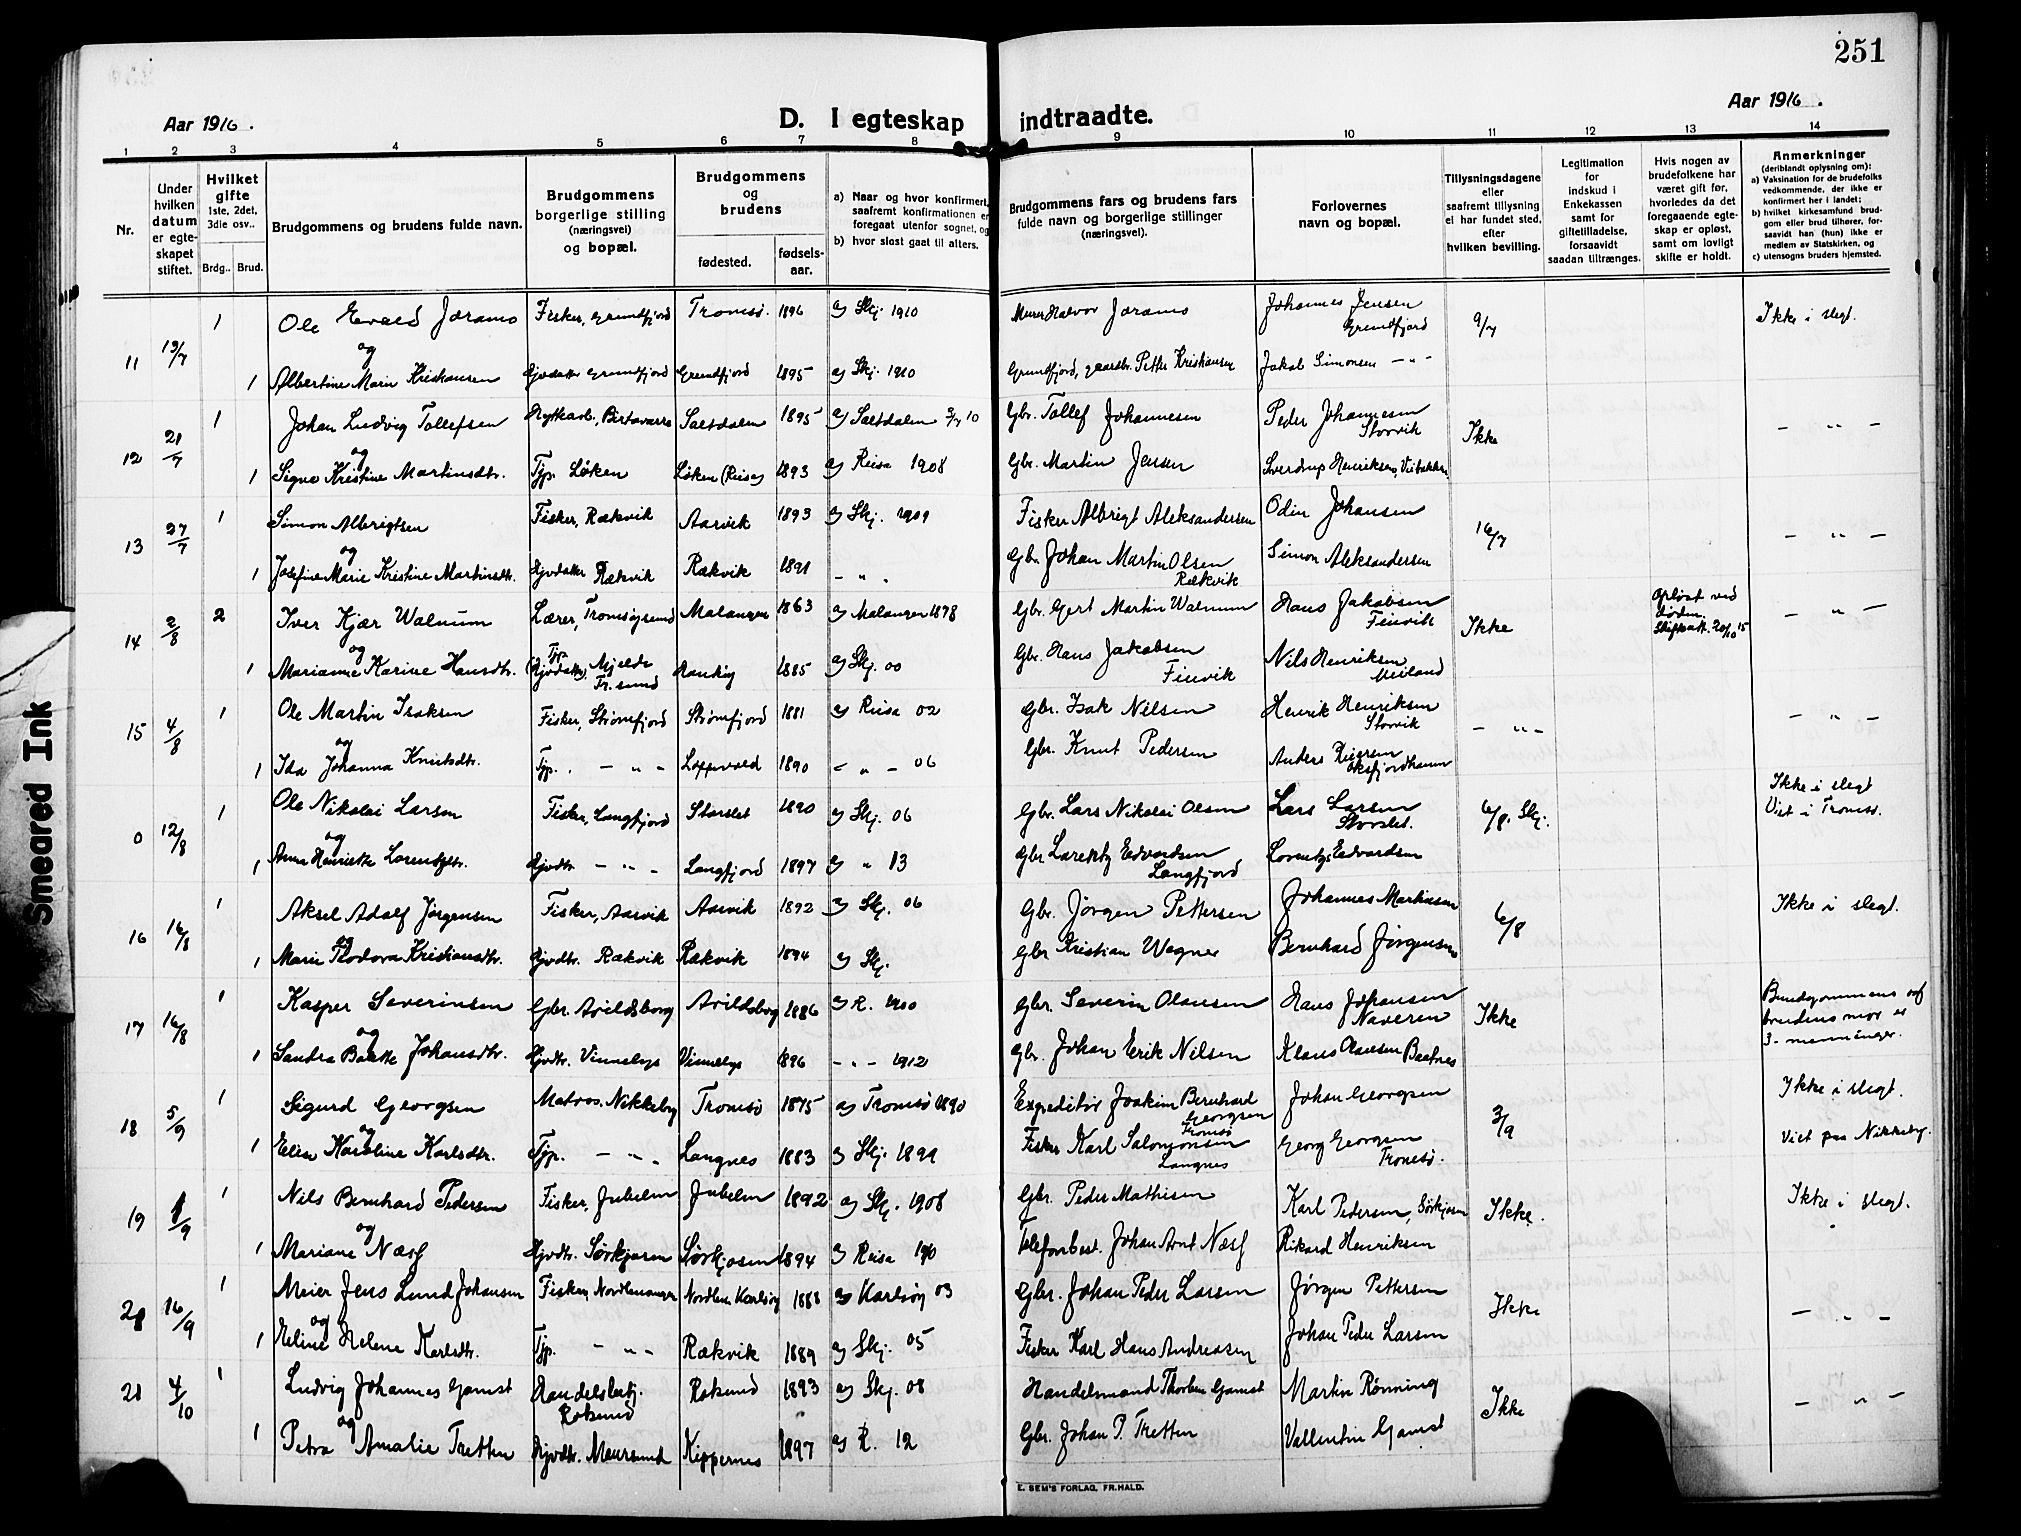 251
Aar 1916.
D. I egteskap indtraadte.
Aar 1916.
1 2 3 4 5 6 7 8 9 10 11 12 13 14
Nr.
Under hvilken datum er egte-skapet stiftet.
Hvilket gifte 1ste, 2det, 3die osv..
Brdg.. Brud.
Brudgommens og brudens fulde navn.
Brudgommens borgerlige stilling (næringsvei) og bopæl.
Brudgommens og brudens
fødested. fødsels-aar.
a) Naar og hvor konfirmert, saafremt konfirmationen er foregaat utenfor sognet, og
b) hvor sidst gaat til alters.
Brudgommens fars og brudens fars fulde navn og borgerlige stillinger (næringsvei).
Forlovernes navn og bopæl.
Tillysningsdagene eller saafremt tillysning ei har fundet sted, efter hvilken bevilling.
Legitimation for indskud i Enkekassen samt for giftetilladelse, forsaavidt saadan tiltrænges.
Hvis nogen av brudefolkene har været gift før, hvorledes da det foregaaende egte-skap er opløst, samt om lovligt skifte er holdt.
Anmerkninger
(deriblandt oplysning om):
a) Vaksination for de brudefolks vedkommende, der ikke er konfirmert her i landet;
b) hvilket kirkesamfund brud-gom eller brud tilhører, for-saavidt han (hun) ikke er medlem av Statskirken, og
c) utensogns bruders hjemsted.
11 19/7 1 Ole Evald Jørams Fisker, Grundfjord Tromsø. 1896 a) Skj. 1910 Murer Halvor Jørams Johannes Jensen Grundfjord 9/7 Ikke i slegt.
og
1 Albertine Marie Kristiansen Gjvdatter Grundfjord Grundfjord 1895 a) Skj. 1910 Grundfjord, gaardbr. Petter Kristiansen Jakob Simonsen — " —
12 21/7 1 Johan Ludvig Tollefsen Birtavarre Saltdalen 1895 a) Saltdalen 3/7 10 Gbr. Tollef Johannesen Peder Johannesen Storvik Ikke — " —
og
1 Signe Kristine Martinsdtr. Tjp. Løken Løken (Reisa) 1893 a) Reisa 1908 Gbr. Martin Jensen Sverdrup Henriksen,
13 27/7 1 Simon Albrigtsen Fisker, Rækvik Aarvik 1893 a) Skj. 1909 Fisker Albrigt Aleksandersen Odin Johansen 16/7 — " —
og
1 Josefine Marie Kristine Martinsdtr. Gjvdatter Rækvik Rækvik 1891 — " . Gbr. Johan Martin Olsen Rækvik Simon Aleksandersen
14 2/8 2 Iver Kjær Walnum Lærer, Tromsøysund Malangen 1863 a) Malangen 1878 Gbr. Gert Martin Walnum Hans Jakobsen Finvik Ikke Opløst ved døden. Skifteatt. 20/10 15 — " —
og
1 Marianne Karine Hansdtr. Tjp. (Gjvdatter), Mjelde Tr.sund 1885 a) Skj. 00 Gbr. Hans Jakobsen Finvik Nils Henriksen, Meiland
15 4/8 1 Ole Martin Isaksen Fisker, Strømfjord Strømfjord 1881 a) Reisa 02 Gbr. Isak Nilsen Henrik Henriksen Storvik — " — — " —
og
1 Ida Johanna Knutsdtr. Tjp. . — " — Loppvold 1890 — " — 06 Gbr. Knut Pedersen Anders Reiersen Oksfjordhavn
0 12/8 1 Ole Nikolai Larsen Fisker, Langfjord Storslet 1890 a) Skj. 06 Gbr. Lars Nikolai Olsen Lars Larsen Storslet. 6/8. Skj. Ikke i slegt Viet i Tromsø.
og
1 Anna Henriette Lorentzdtr. Gjvdtr. — " — Langfjord 1897 a) " 13 Gbr Lorentz Edvardsen Langfjord Lorentz Edvardsen
16 16/8 1 Aksel Adolf Jørgensen Fisker, Aarvik Aarvik 1892 a) Skj. 06 Gbr. Jørgen Pettersen Johannes Martinsen 6/8 Ikke i slegt.
og
1 Marie Teodora Kristiansdtr. Gjvdtr. Rækvik Rækvik 1894 a) Skj. Gbr Kristian Wagner Bernhard Jørgensen
17 16/8 1 Kasper Severinsen Gbr. Avildsborg Avildsborg 1886 a) R. 1900 Gbr. Severin Olausen Hans Johansen Naveren Ikke Brudgommens og brudens mor er 3-menninger.
og
1 Sandra Baatte Johansdtr. Gjvdtr. Vinnelys Vinnelys 1896 — " — 1912 Gbr. Johan Erik Nilsen Klaus Olausen Baatnes
18 5/9 1 Sigurd Georgsen Matros. Nikkeby Tromsø 1875 a) Tromsø 1890 Expeditør Joakim Bernhard Georgsen Tromsø Johan Georgsen 3/9 Ikke i slegt. Viet paa Nikkeby.
og
1 Elise Karoline Karlsdtr. Tjp. — " — Langnes 1883 a) Skj. 1899 Fisker Karl Salomonsen Langnes Georg Georgsen Tromsø.
19 1/9 1 Nils Bernhard Pedersen Fisker, Jubelen Jubelen 1892 a) Skj. 1908 Gbr. Peder Mathisen Karl Pedersen, Sørkjosen Ikke. Ikke i slegt.
og
1 Mariane Næss Gjvdtr. Sørkjosen Sørkjosen 1894 a) Reisa 1910 Telefonbest. Johan Arnt Næss Rikard Henriksen
20 16/9 1 Meier Jens Lund Johansen Fisker, Nordlenangen Nordlen. Karlsøy 1888 a) Karlsøy 03 Gbr. Johan Peder Larsen Jørgen Pettersen Ikke — " —
og
1 Eline Helene Karlsdtr. Tjp. — " — Rækvik 1889 a) Skj. 05 Fisker Karl Hans Andreasen Johan Peder Larsen
21 4/10 1 Ludvig Johannes Gamst Handelsbetj. Rotsund Rotsund 1893 a) Skj. 08 Handelsmand Thorleu Gamst Martin Rønning Ikke — " —
og
1 Petra Amalie Tretten Gjvdtr. Maursund Kippernes 1897 a) R. 12 Gbr. Johan P. Tretten Vallentin Gamst
E. SEM'S FORLAG, FR.HALD.
Smeared Ink